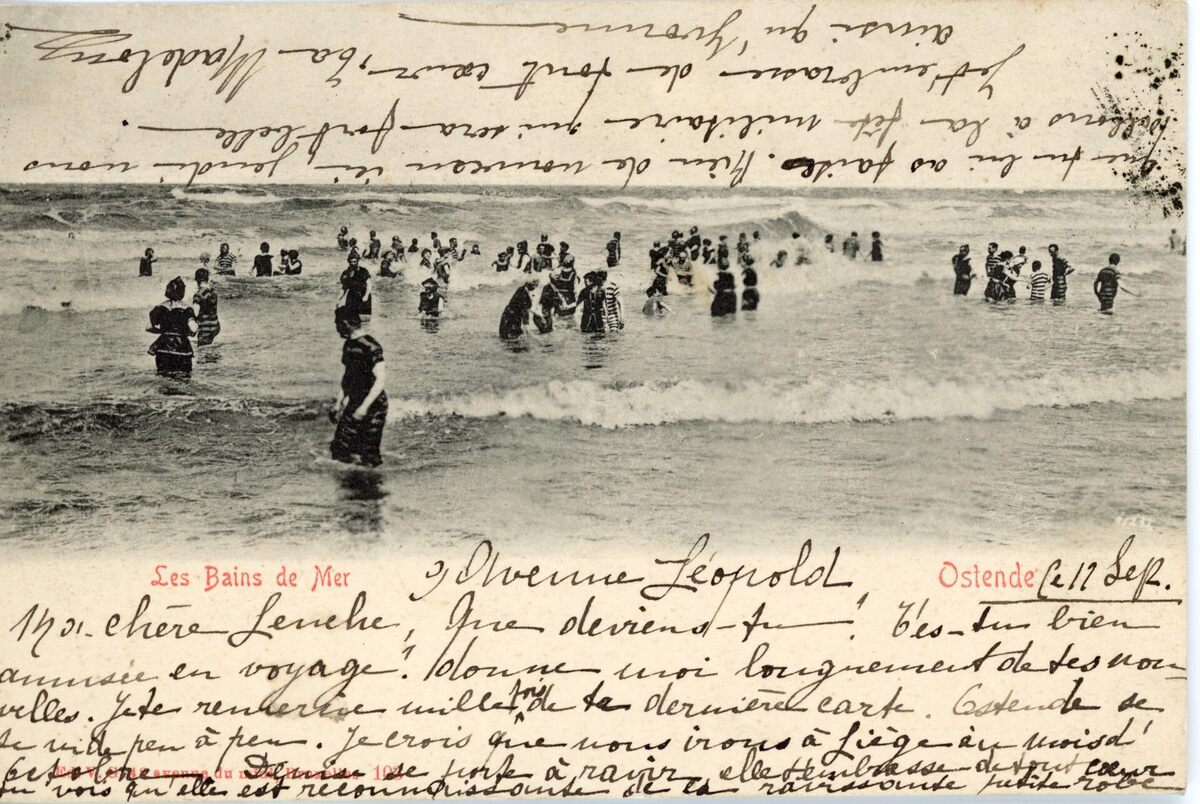 Les Bains de Mer
9, Avenue Léopold
Ostende
Ce 12 Sept.
Ma chère Lenche, Que deviens-tu? T'es-tu bien
amusée en voyage? donne moi longuement de tes nou
velles. Je te remercie mille fois de ta dernière carte. Ostende se
se vide peu à peu. Je crois que nous irons à Liège au mois d'
Octobre. se porte à ravir, elle t'embrasse de tout cœur
tu vois qu'elle est reconnaissante de la ravissante petite robe
que tu lui as faite. Rien de nouveau ici, jeudi nous
allons à la fête militaire qui sera fort belle.
Je t'embrasse de tout cœur, Ta Madelon
ainsi qu'Yvonne
avenue du midi, Bruxelles